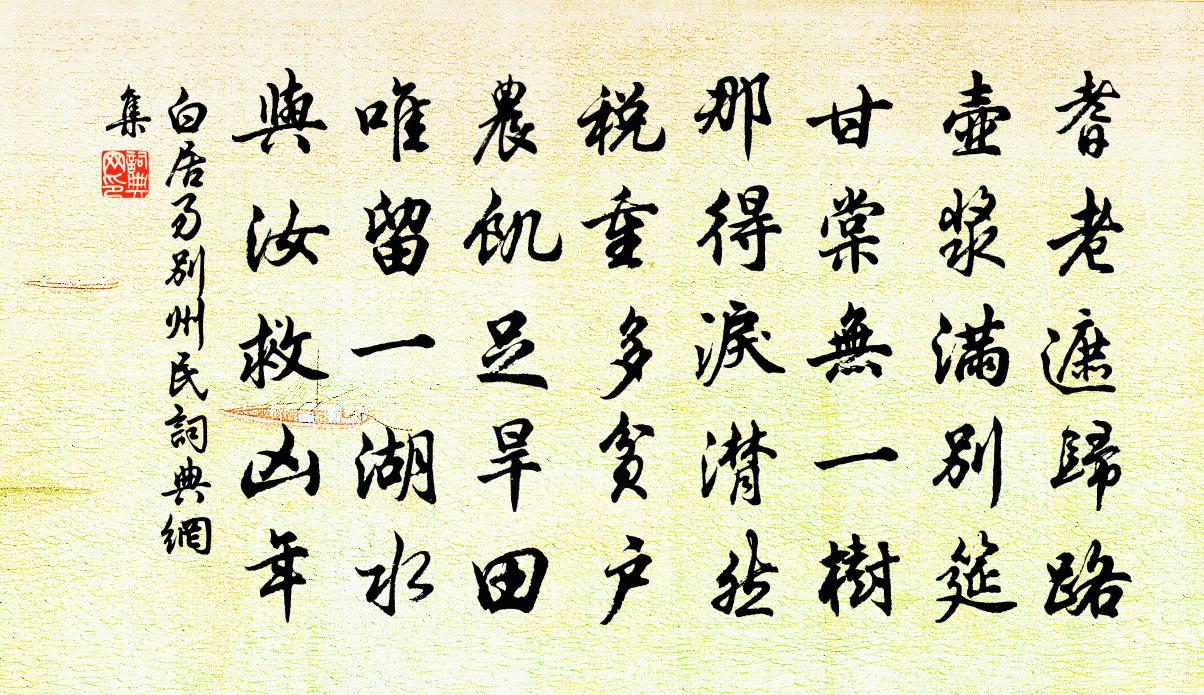 耆老遮歸路
壺漿滿別筵
甘棠無一樹
那得淚潸然
税重多貧户
農飢足旱田
唯留一湖水
與汝救凶年
白居易別州民詞典網
集
詞典
网印